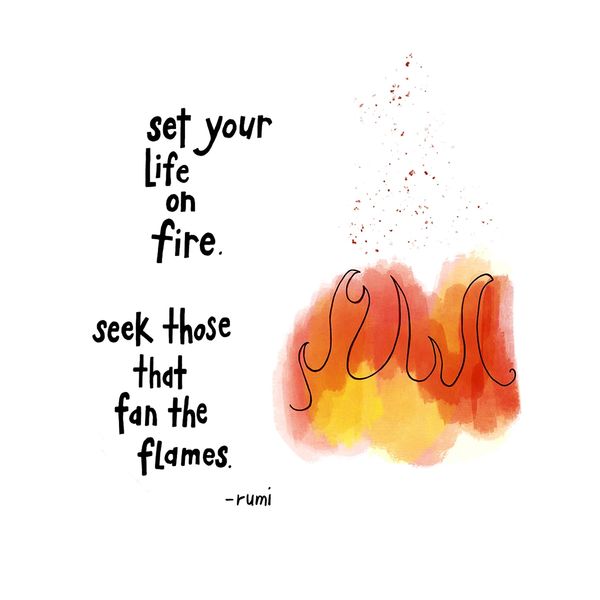 set your
life
on
fire.
seek those
that
fan the
flames.
-rumi